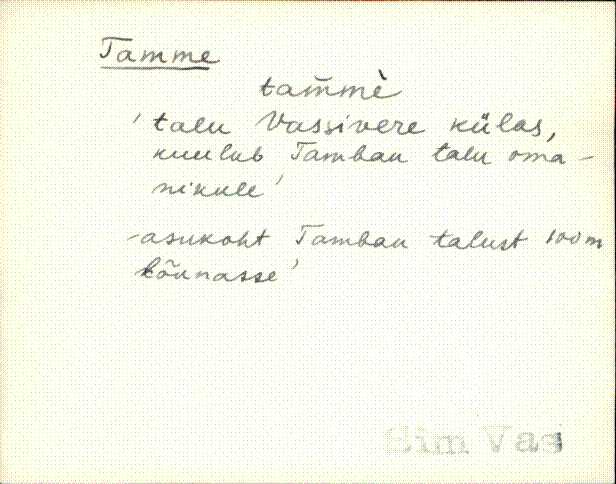 Tamme
tam̄mè
'talu Vassivere külas,
kuulub Tambau talu oma-
nikule'
-asukoht Tambau talust 100m
lõunasse'
Sim Vas